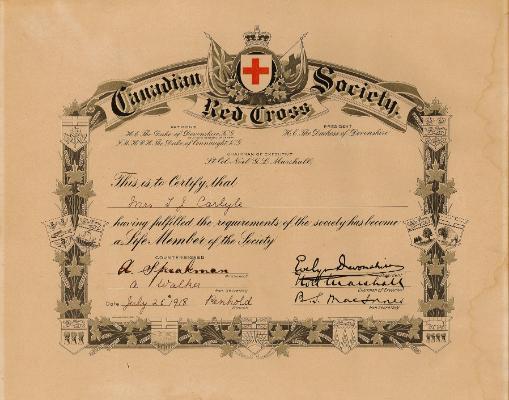 Canadian Red Cross Society.
PATRONS
H.E. The Duke of Devonshire, K.G.
F.M. H.R.H. The Duke of Connaught, K.G.
PRESIDENT
H.E. The Duchess of Devonshire
CHAIRMAN OF EXECUTIVE
Lt. Col. Noel G. L. Marshall.
This is to Certify, that
Mrs T J Carlyle
having fulfilled the requirements of the society has become
a Life Member of the Society
COUNTERSIGNED
A. Speakman
PRESIDENT
A Walker
HON. SECRETARY
Date July 25 1918 Penhold
BRANCH
Evelyn Devonshire
PRESIDENT
Marshall
CHAIRMAN OF EXECUTIVE
HON. SECRETARY